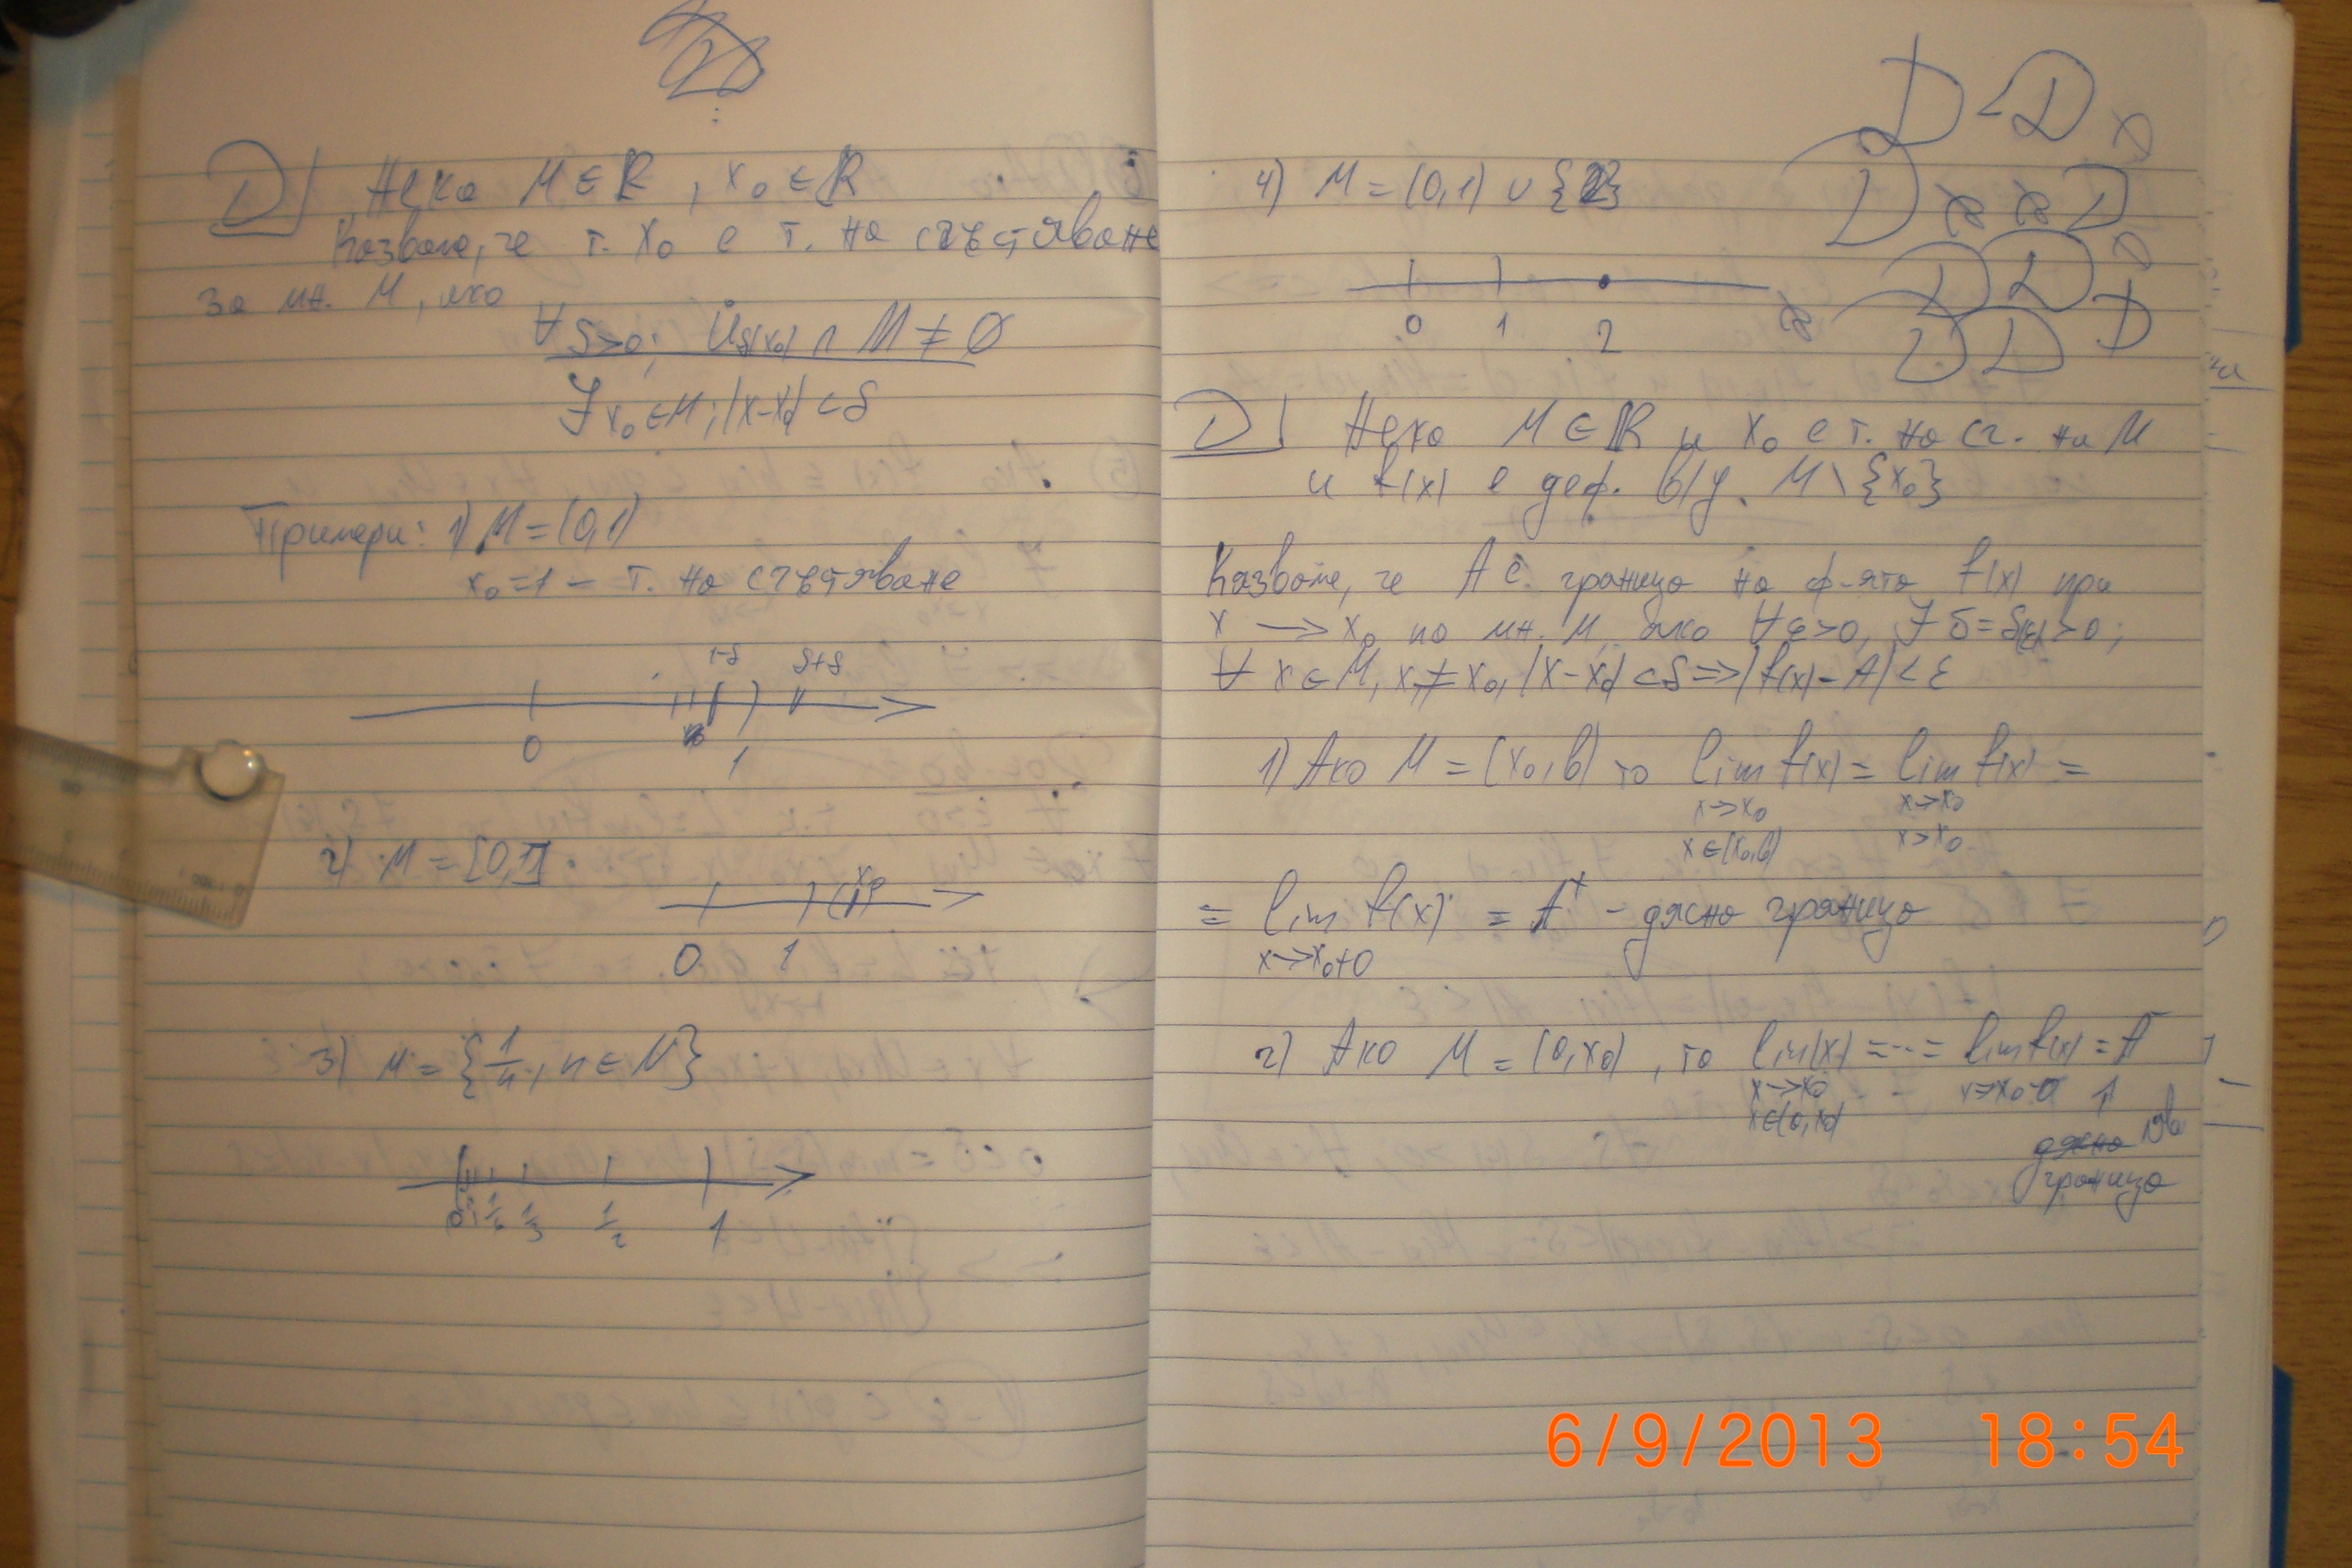 D| Нека M ∈ ℝ , x₀ ∈ ℝ
Казваме, че т. x₀ е т. на сгъстяване
за мн. M, ако
∀ δ>0; U̇δ(x₀) ∩ M ≠ ∅
∃ x₀ ∈ M; |x-x₀| < δ
Примери: 1) M = (0,1)
x₀ = 1 – т. на сгъстяване
1-δ δ+δ
0 1
2) M = [0,1]
x₀
0 1
3) M = {1/n, n ∈ N}
0 1/3 1/2 1
4) M = (0,1) ∪ {2}
0 1 2
D| Нека M ∈ ℝ и x₀ е т. на сг. на M
и f(x) е деф. в/у M \ {x₀}
Казваме, че A е граница на ф-ята f(x) при
x → x₀ по мн. M, ако ∀ε>0, ∃ δ=δ(ε)>0;
∀ x ∈ M, x ≠ x₀, |x-x₀| < δ => |f(x) - A| < ε
1) Ако M = (x₀, b) то lim f(x) = lim f(x) =
x→x₀ x→x₀
x∈(x₀,b) x>x₀
= lim f(x) = A⁺ - дясна граница
x→x₀+0
2) Ако M = (a, x₀), то lim(x) = ... = lim f(x) = A⁻
x→x₀ x→x₀-0 ↑
x∈(a,x₀)
дясна лява
граница
6/9/2013 18:54